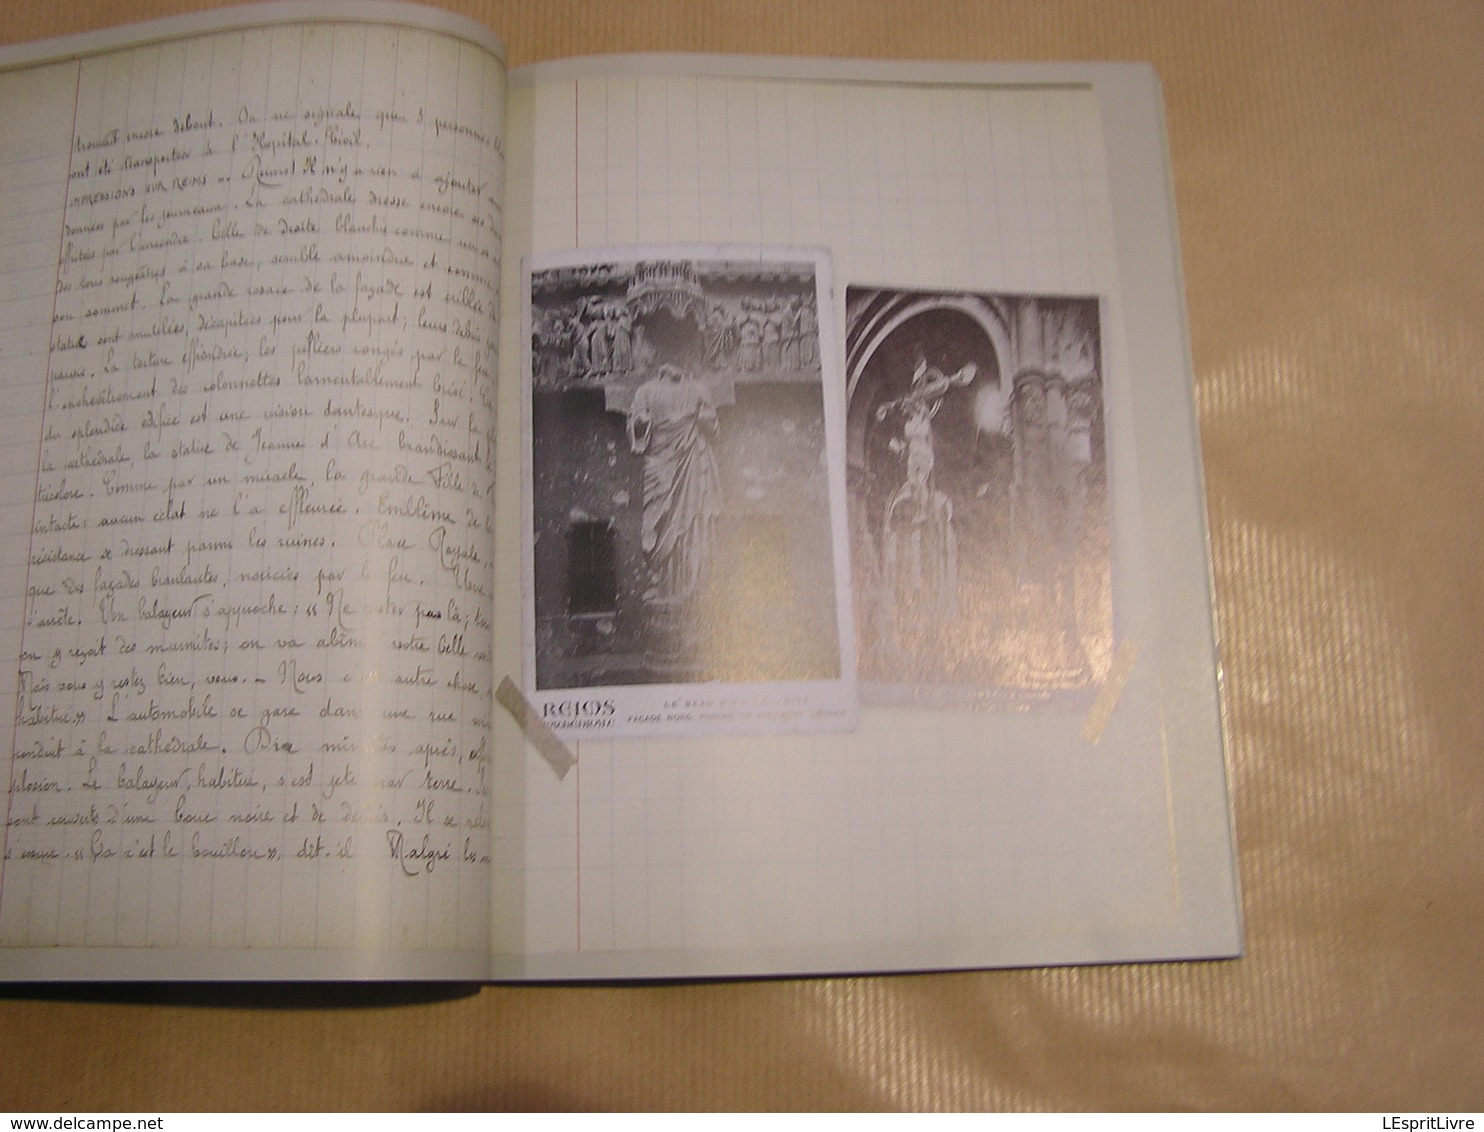 trouvait encore debout. On ne signale que 3 personnes
ont été transportées à l'Hopital-Civil.
IMPRESSIONS SUR REIMS -. Reims! Il n'y a rien à ajouter
données par les journeaux. La cathédrale dresse encore ses
effritées par l'incendie. Celle de droite blanchie comme un
des tons rougeâtres à sa base, semble amoindrie et comme
son sommet. La grande rosace de la façade est criblée
statue sont mutilées, décapitées pour la plupart; leurs débris
parvis. La toiture effondrée, les pilliers rongés par le feu
l'enchevêtrement des colonnettes lamentablement brisé.
du splendide édifice est une vision dantesque. Sur la
la cathédrale, la statue de Jeanne d'Arc brandissant le
tricolore. Comme par un miracle, la grande Fille de
intacte: aucun éclat ne l'a effleurée. Emblême de la
résistance se dressant parmi les ruines. Place Royale,
que des façades branlantes, noircies par le feu. Une
s'arrête. Un balayeur s'approche: « Ne rester pas là;
on y reçoit des marmites; on va abîm votre belle
Mais vous y restez bien, vous. - Nous c'est autre chose,
habitué » L'automobile se gare dans une rue
conduit à la cathédrale. Dix minutes après,
plosion. Le balayeur, habitué, s'est jeté par terre.
sont couverts d'une boue noire et de débris. Il se
s'essuye. « Ça c'est le bouillon », dit-il Malgré les
REIMS
CATHÉDRALE
LE BEAU DIEU
FAÇADE NORD,
LEspritLivre